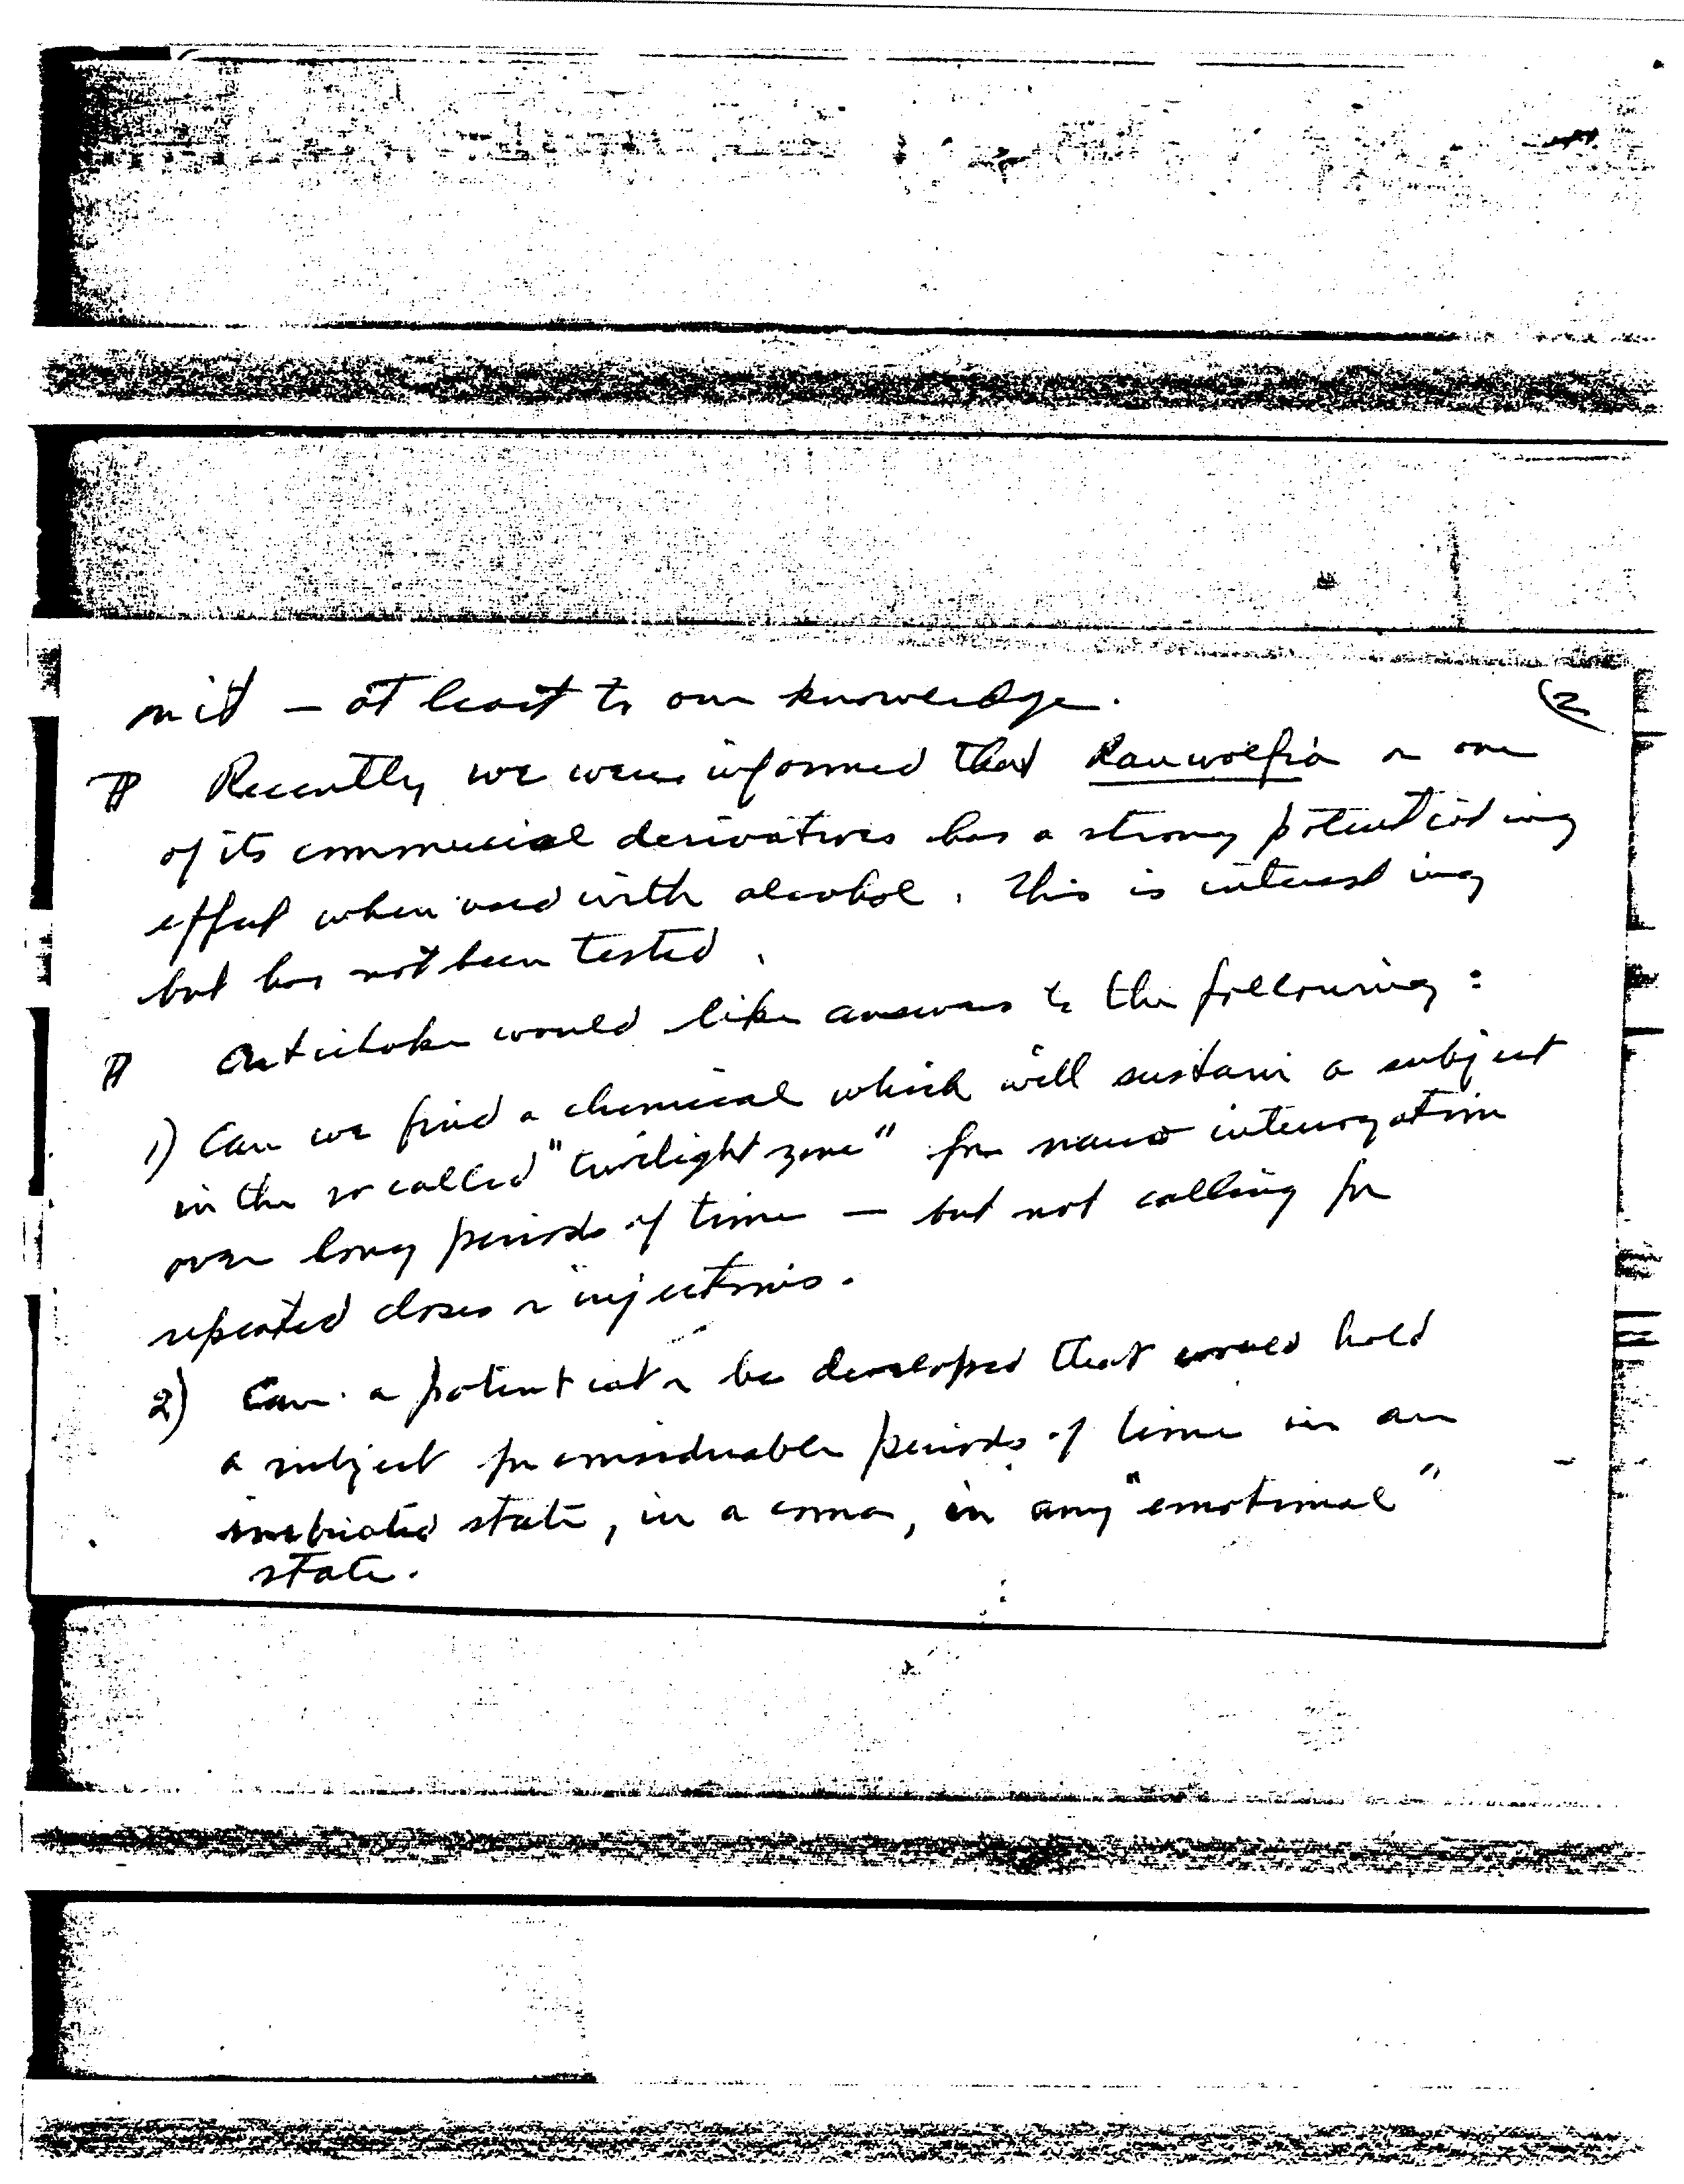 on it — at least to our knowledge.
(2
¶ Recently we were informed that Rauwolfia or one
of its commercial derivatives has a strong potentiating
effect when used with alcohol. This is interesting
but has not been tested.
¶ Artichoke would like answers to the following:
1) Can we find a chemical which will sustain a subject
in the so called "twilight zone" for narco interrogation
over long periods of time — but not calling for
repeated doses or injections.
2) Can a potentiator be developed that would hold
a subject for considerable periods of time in an
inebriated state, in a coma, in any "emotional"
state.